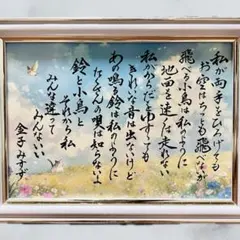 私が両手をひろげても
お空はちっとも飛べないが
飛べる小鳥は私のように
地面を速くは走れない
私がからだをゆすっても
きれいな音は出ないけど
あの鳴る鈴は私のように
たくさんな唄は知らないよ
鈴と小鳥と
それから私
みんな違って
みんないい
金子みすゞ